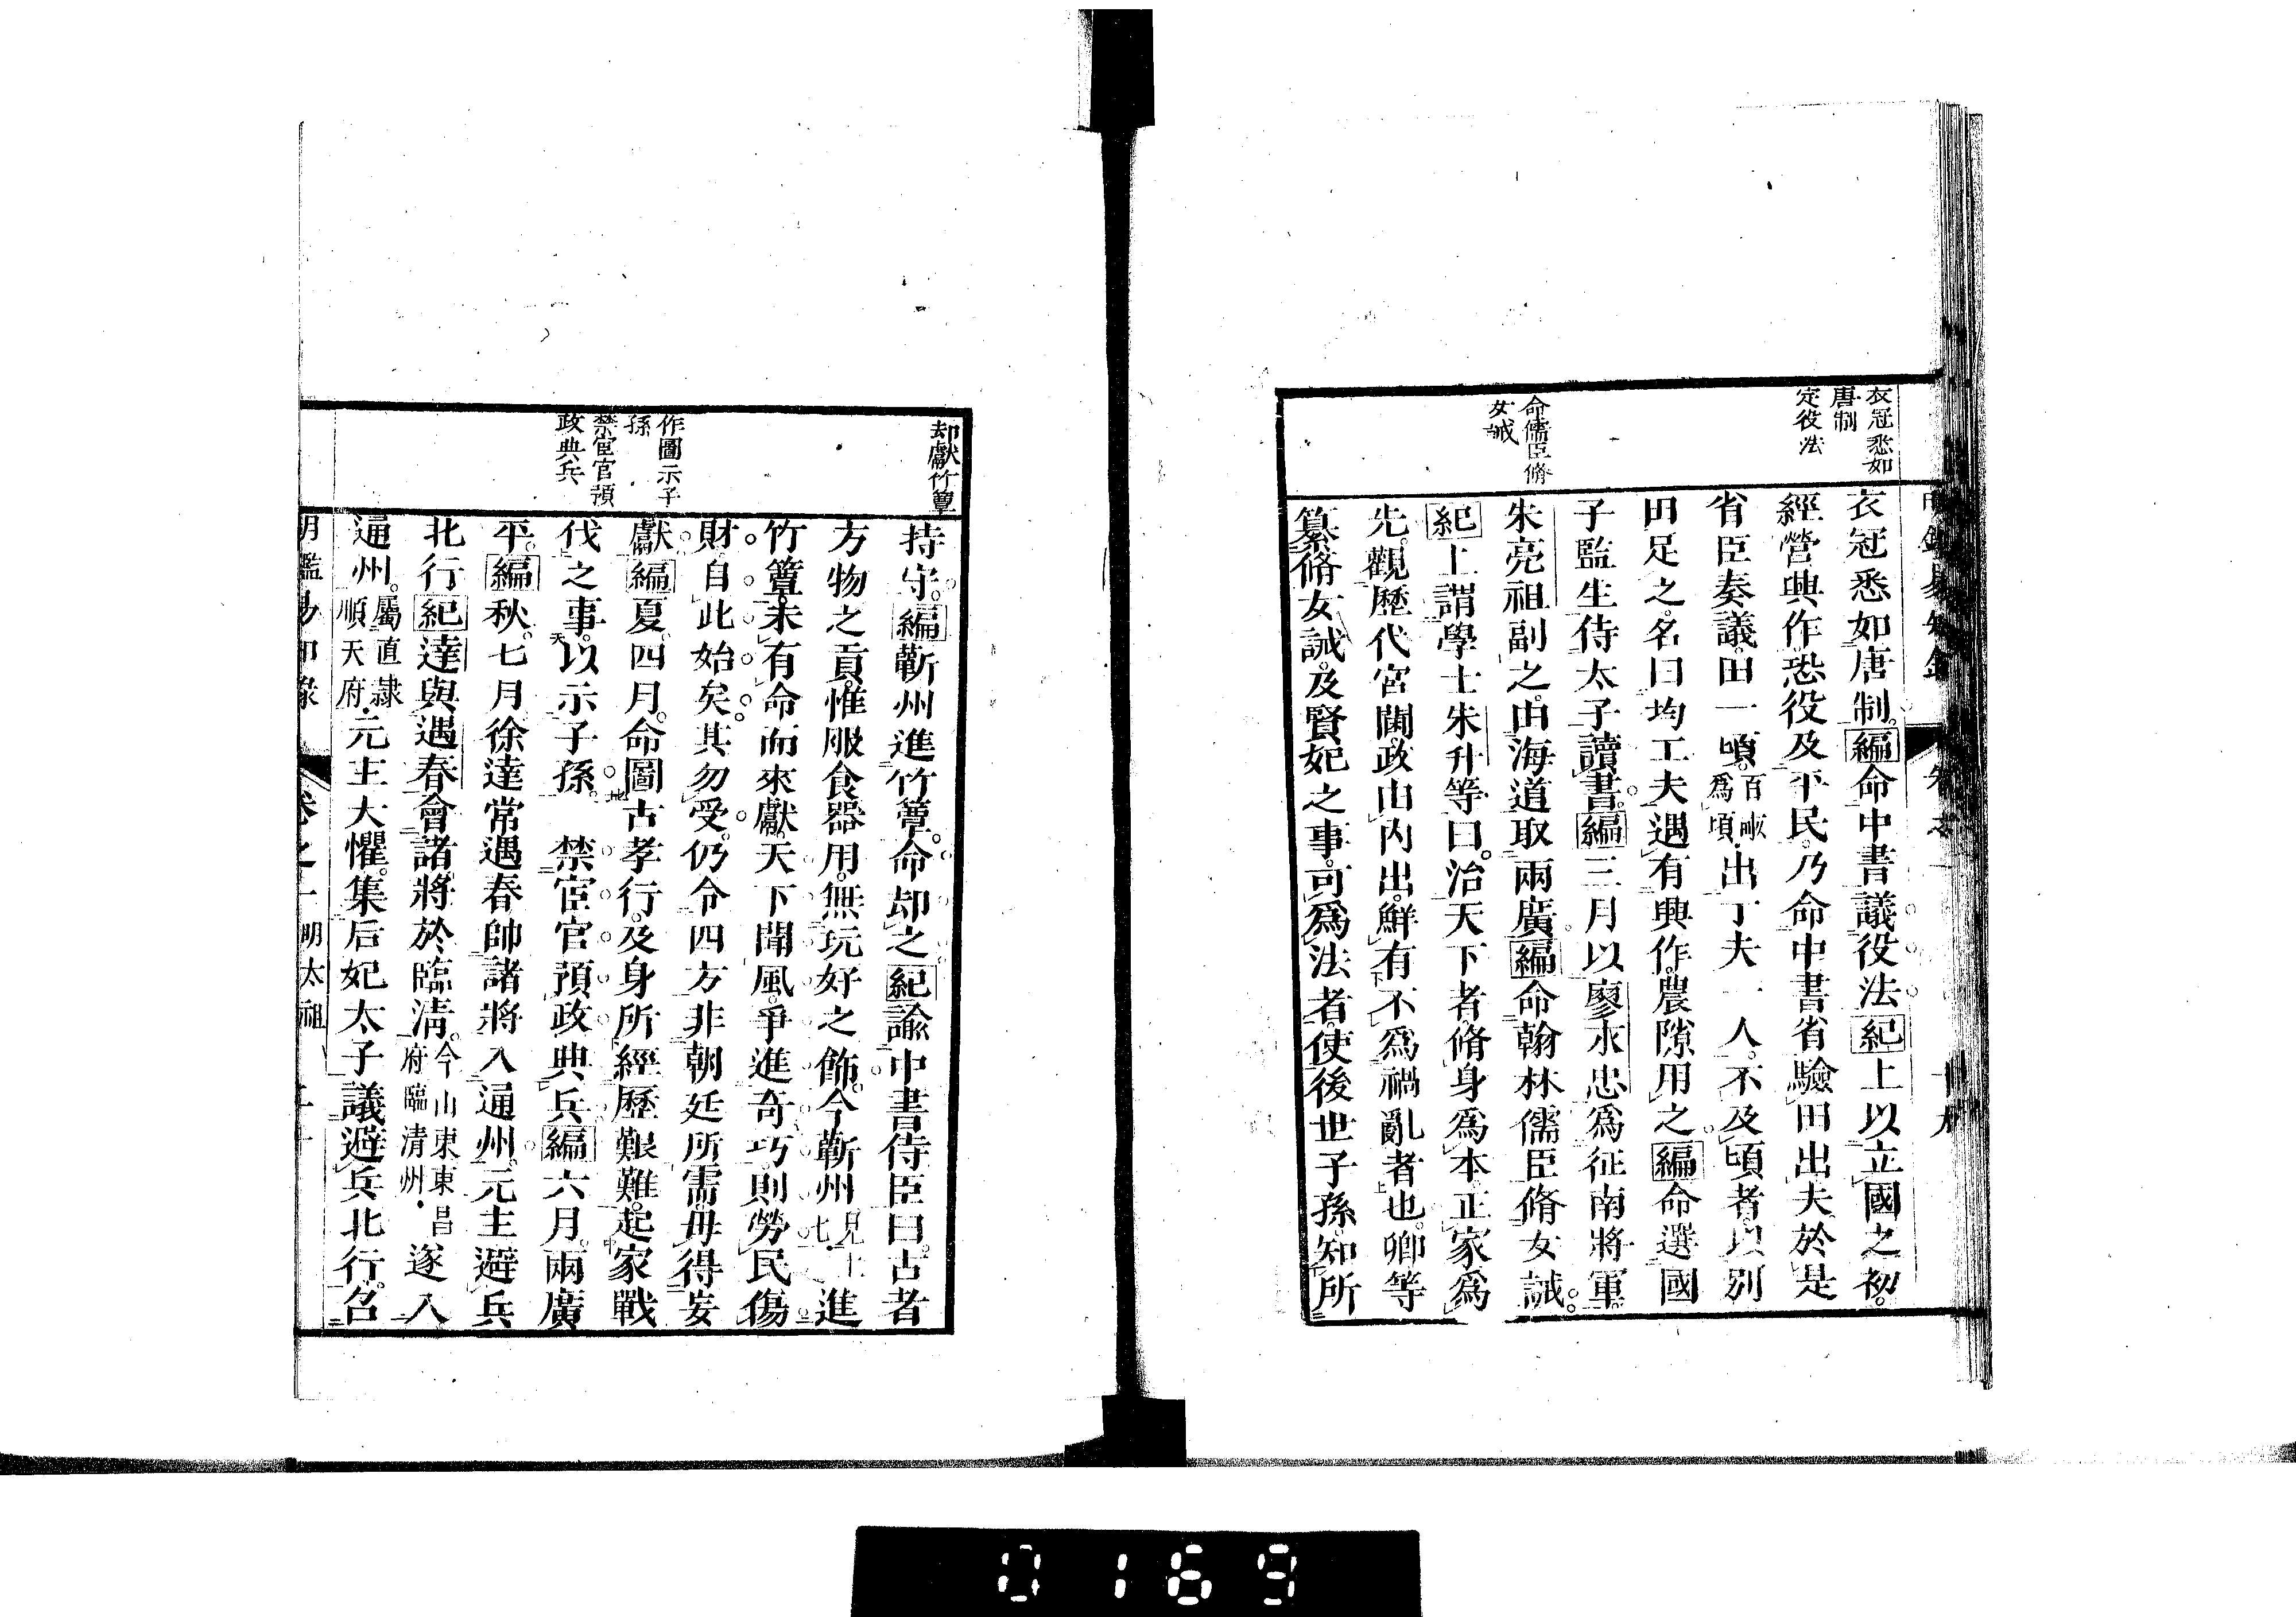 衣冠悉如
唐制
定役法
命儒臣脩
女誡
衣冠悉如唐制。編命中書議役法。紀上以立國之初。
經營興作。恐役及平民。乃命中書省驗田出夫。於是
省臣奏議。田一頃。百畝爲頃。出丁夫一人。不及頃者。以別
田足之。名曰均工夫。遇有興作。農隙用之。編命選國
子監生侍太子讀書。編三月以廖永忠爲征南將軍。
朱亮祖副之。由海道取兩廣。編命翰林儒臣脩女誡。
紀上謂學士朱升等曰。治天下者。脩身爲本。正家爲
先。觀歷代宮闈。政由內出。鮮有不爲禍亂者也。卿等
纂脩女誡。及賢妃之事。可爲法者。使後世子孫。知所
却獻竹簟
作圖示子
孫
禁宦官預
政典兵
持守。編蘄州進竹簟。命却之。紀諭中書侍臣曰。古者
方物之貢。惟服食器用。無玩好之飾。今蘄州進
竹簟。未有命而來獻。天下聞風。爭進奇巧。則勞民傷
財。自此始矣。其勿受。仍令四方非朝廷所需。毋得妄
獻。編夏四月。命圖古孝行。及身所經歷艱難。起家戰
伐之事。以示子孫。 禁宦官預政典兵。編六月。兩廣
平。編秋七月徐達常遇春帥諸將入通州。元主避兵
北行。紀達與遇春會諸將於臨清。今山東東昌府臨清州。遂入
通州。屬直隸順天府。元主大懼。集后妃太子議避兵北行。召
明鑑易知錄 卷之一 明太祖
0169